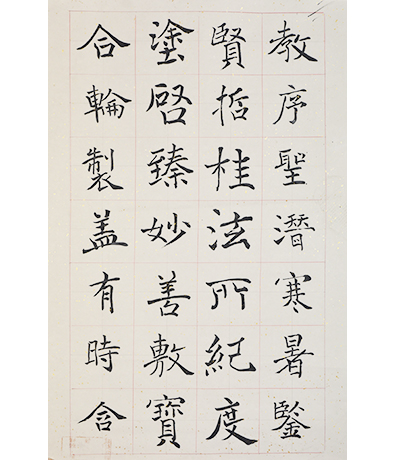 教序聖潛寒暑鑒
賢哲桂法所紀度
塗啓臻妙善敷寶
合輪製盖有時含